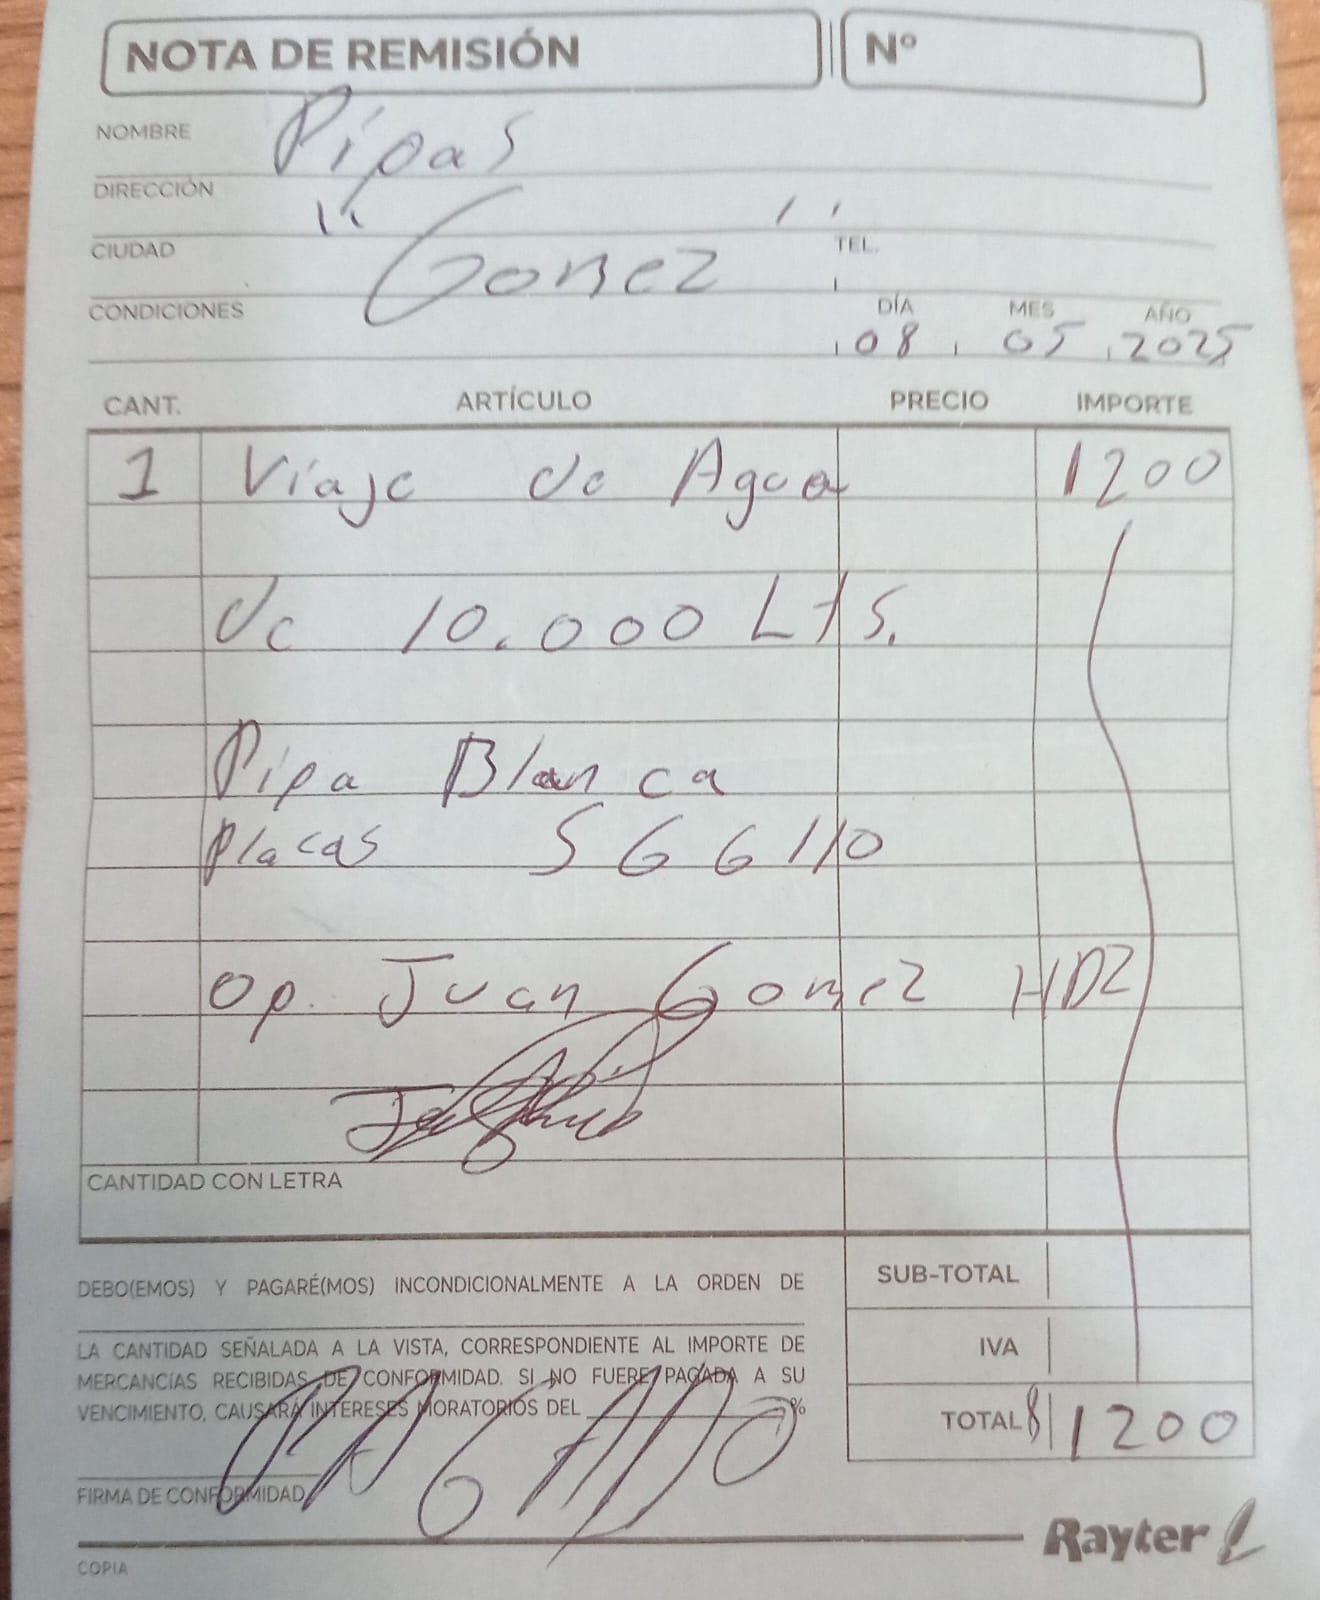 NOTA DE REMISIÓN
Nº
NOMBRE Pipas
DIRECCIÓN
CIUDAD "Gomez" TEL.
CONDICIONES DÍA MES AÑO
08 05 2025
CANT. ARTÍCULO PRECIO IMPORTE
1 Viaje de Agua 1200
de 10.000 Lts.
Pipa Blanca
Placas 566110
Op. Juan Gomez HDZ
CANTIDAD CON LETRA
DEBO(EMOS) Y PAGARÉ(MOS) INCONDICIONALMENTE A LA ORDEN DE
SUB-TOTAL
LA CANTIDAD SEÑALADA A LA VISTA, CORRESPONDIENTE AL IMPORTE DE
IVA
MERCANCÍAS RECIBIDAS DE CONFORMIDAD. SI NO FUERE PAGADA A SU
VENCIMIENTO, CAUSARÁ INTERESES MORATORIOS DEL %
TOTAL $ 1200
PAGADO
FIRMA DE CONFORMIDAD
Rayter
COPIA